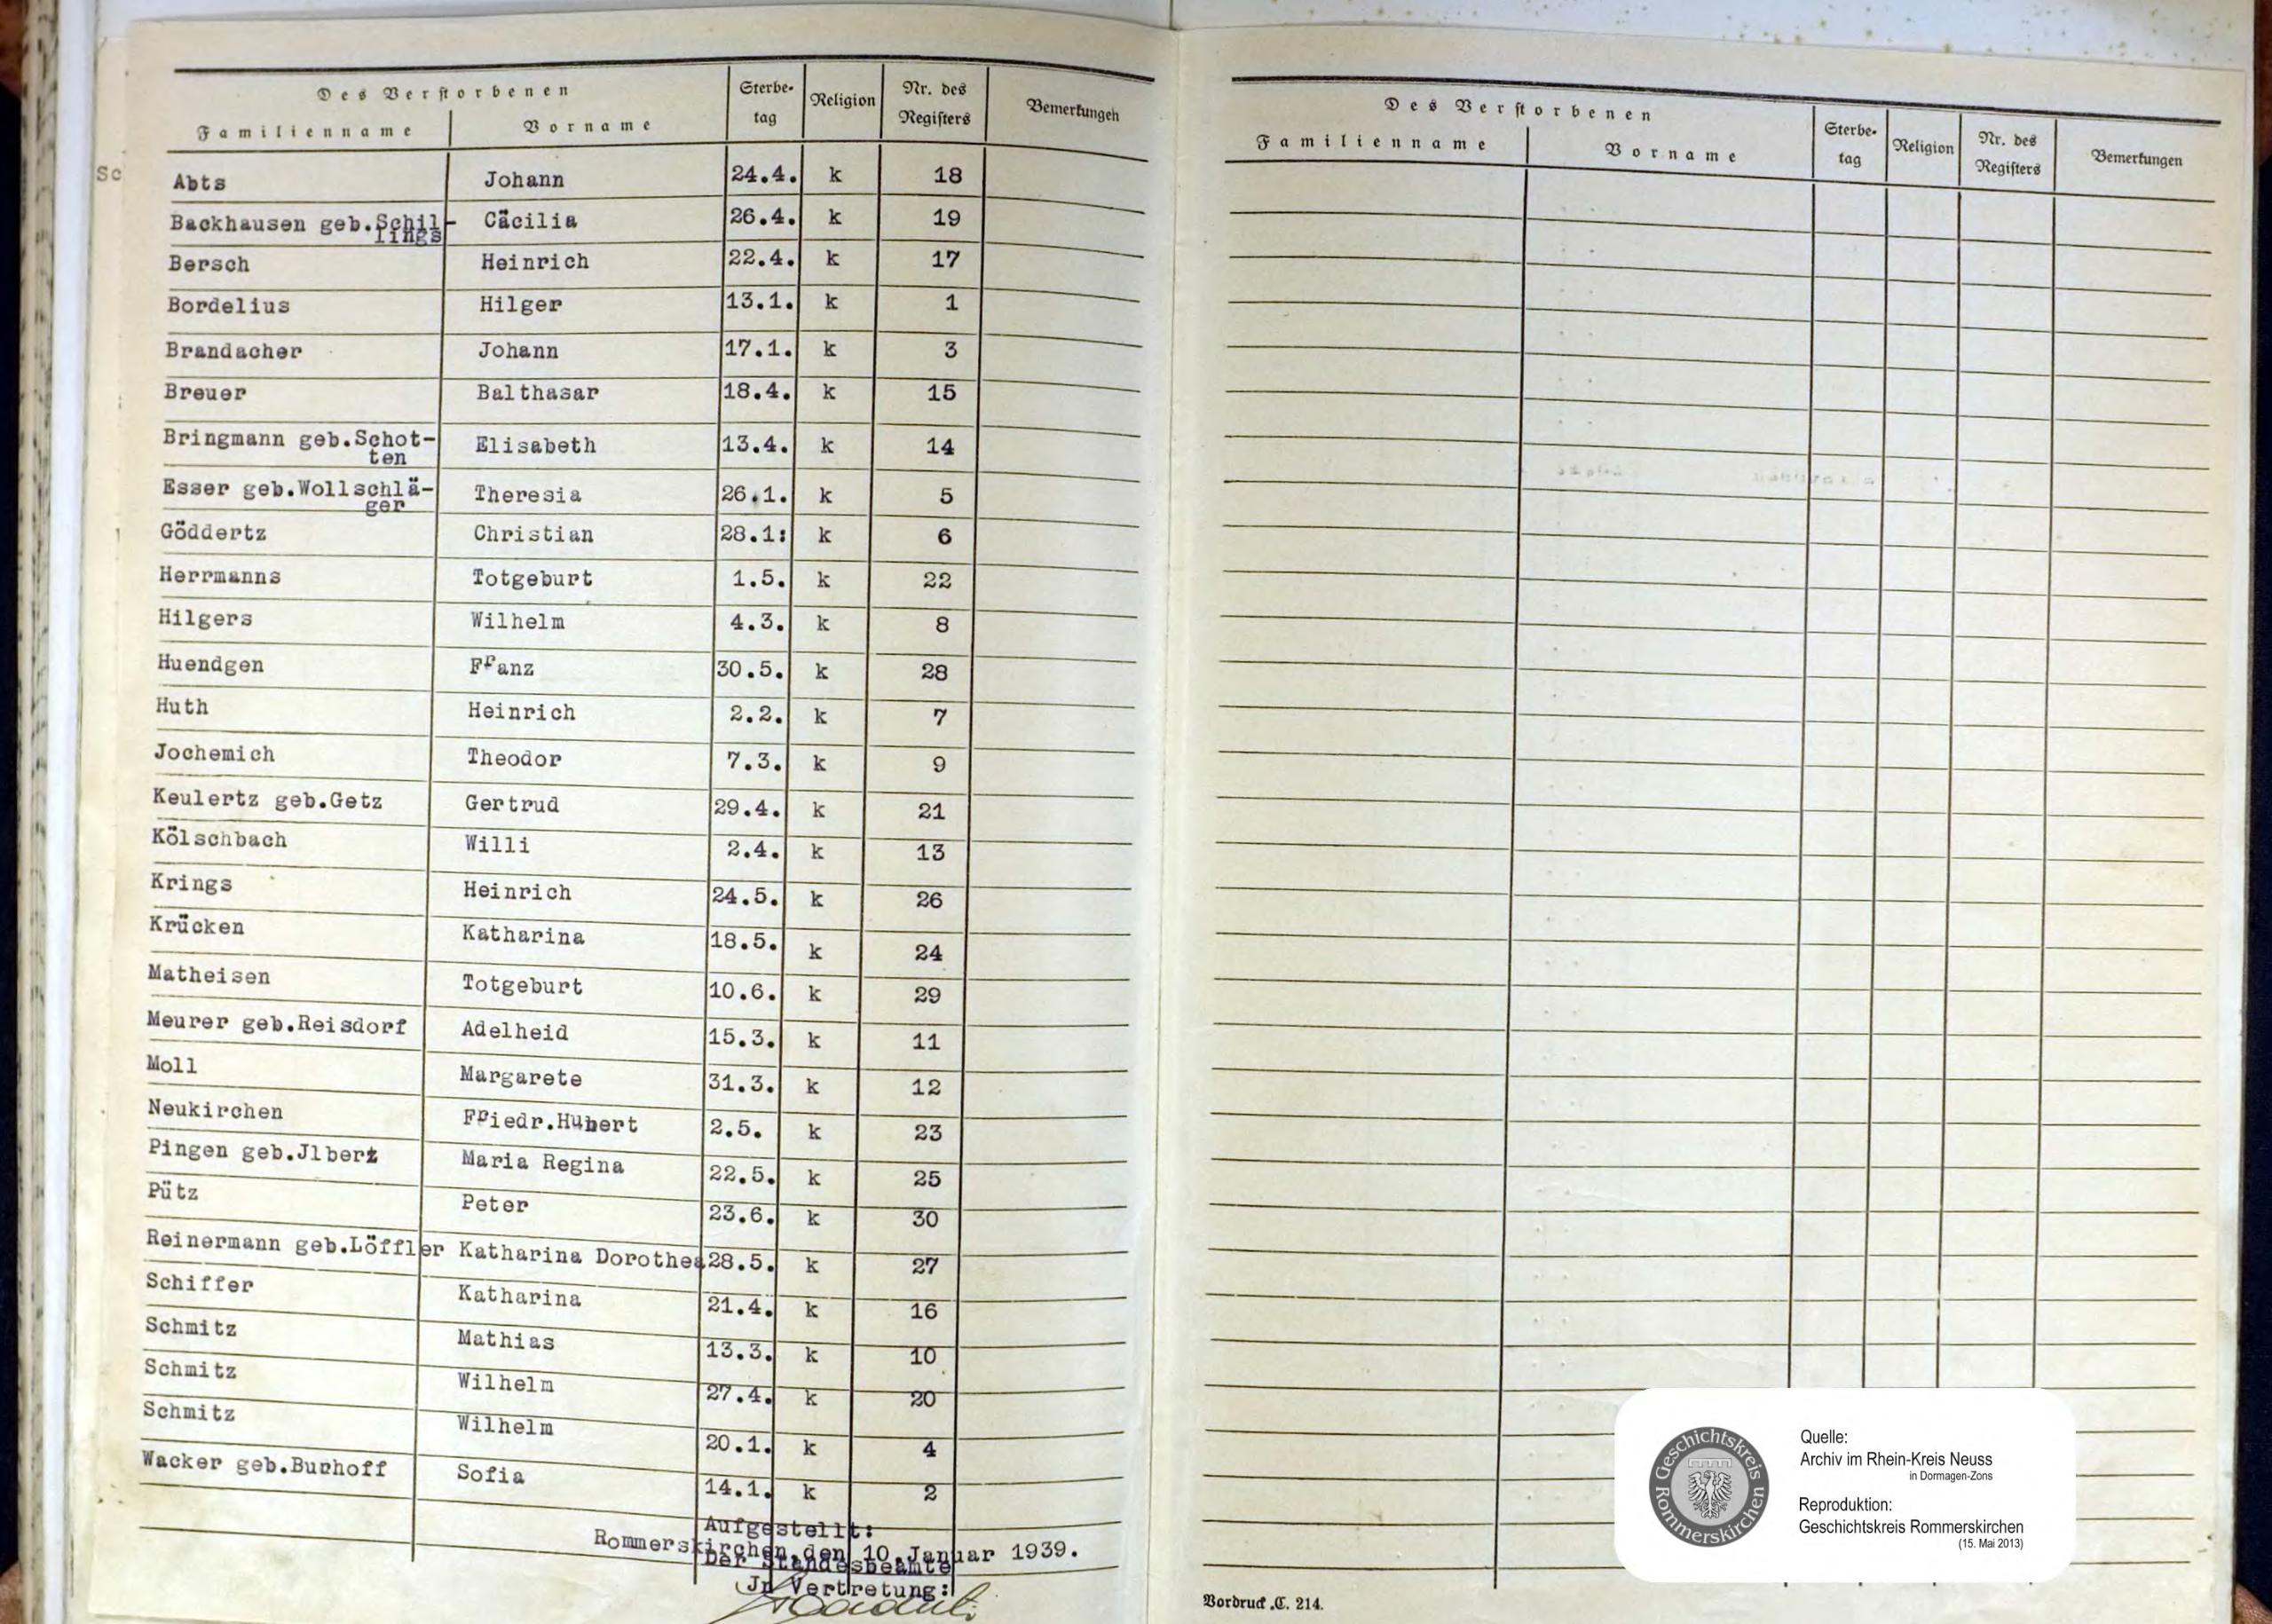 Des Verstorbenen
Familienname Vorname Sterbe-tag Religion Nr. des Registers Bemerkungen
Sc
Abts Johann 24.4. k 18
Backhausen geb.Schil- Cäcilia 26.4. k 19
lings
Bersch Heinrich 22.4. k 17
Bordelius Hilger 13.1. k 1
Brandacher Johann 17.1. k 3
Breuer Balthasar 18.4. k 15
Bringmann geb.Schot- Elisabeth 13.4. k 14
ten
Esser geb.Wollschlä- Theresia 26.1. k 5
ger
Göddertz Christian 28.1: k 6
Herrmanns Totgeburt 1.5. k 22
Hilgers Wilhelm 4.3. k 8
Huendgen Franz 30.5. k 28
Huth Heinrich 2.2. k 7
Jochemich Theodor 7.3. k 9
Keulertz geb.Getz Gertrud 29.4. k 21
Kölschbach Willi 2.4. k 13
Krings Heinrich 24.5. k 26
Krücken Katharina 18.5. k 24
Matheisen Totgeburt 10.6. k 29
Meurer geb.Reisdorf Adelheid 15.3. k 11
Moll Margarete 31.3. k 12
Neukirchen Friedr.Hubert 2.5. k 23
Pingen geb.Jlbertz Maria Regina 22.5. k 25
Pütz Peter 23.6. k 30
Reinermann geb.Löffler Katharina Dorothea 28.5. k 27
Schiffer Katharina 21.4. k 16
Schmitz Mathias 13.3. k 10
Schmitz Wilhelm 27.4. k 20
Schmitz Wilhelm 20.1. k 4
Wacker geb.Burhoff Sofia 14.1. k 2
Aufgestellt:
Rommerskirchen,den 10.Januar 1939.
Der Standesbeamte
Jn Vertretung:
Des Verstorbenen
Familienname Vorname Sterbe-tag Religion Nr. des Registers Bemerkungen
Geschichtskreis Rommerskirchen
Quelle:
Archiv im Rhein-Kreis Neuss
in Dormagen-Zons
Reproduktion:
Geschichtskreis Rommerskirchen
(15. Mai 2013)
Vordruck C. 214.